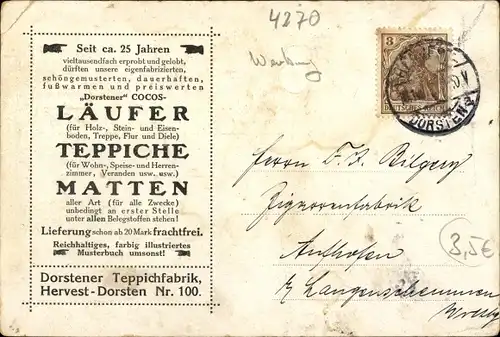 Seit ca. 25 Jahren
vieltausendfach erprobt und gelobt,
dürften unsere eigenfabrizierten,
schöngemusterten, dauerhaften,
fußwarmen und preiswerten
„Dorstener" COCOS-
LÄUFER
(für Holz-, Stein- und Eisen-
boden, Treppe, Flur und Diele)
TEPPICHE
(für Wohn-, Speise- und Herren-
zimmer, Veranden usw. usw.)
MATTEN
aller Art (für alle Zwecke)
unbedingt an erster Stelle
unter allen Belegstoffen stehen!
Lieferung schon ab 20 Mark frachtfrei.
Reichhaltiges, farbig illustriertes
Musterbuch umsonst!
Dorstener Teppichfabrik,
Hervest-Dorsten Nr. 100.
4270
Werbung
3
DEUTSCHES REICH
DORSTEN
Herrn B. Bilgery
Zigarrenfabrik
Aufhofen
Langenschemmern
3,5€